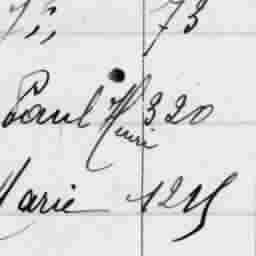 73
Paul Henri 320
Marie 125